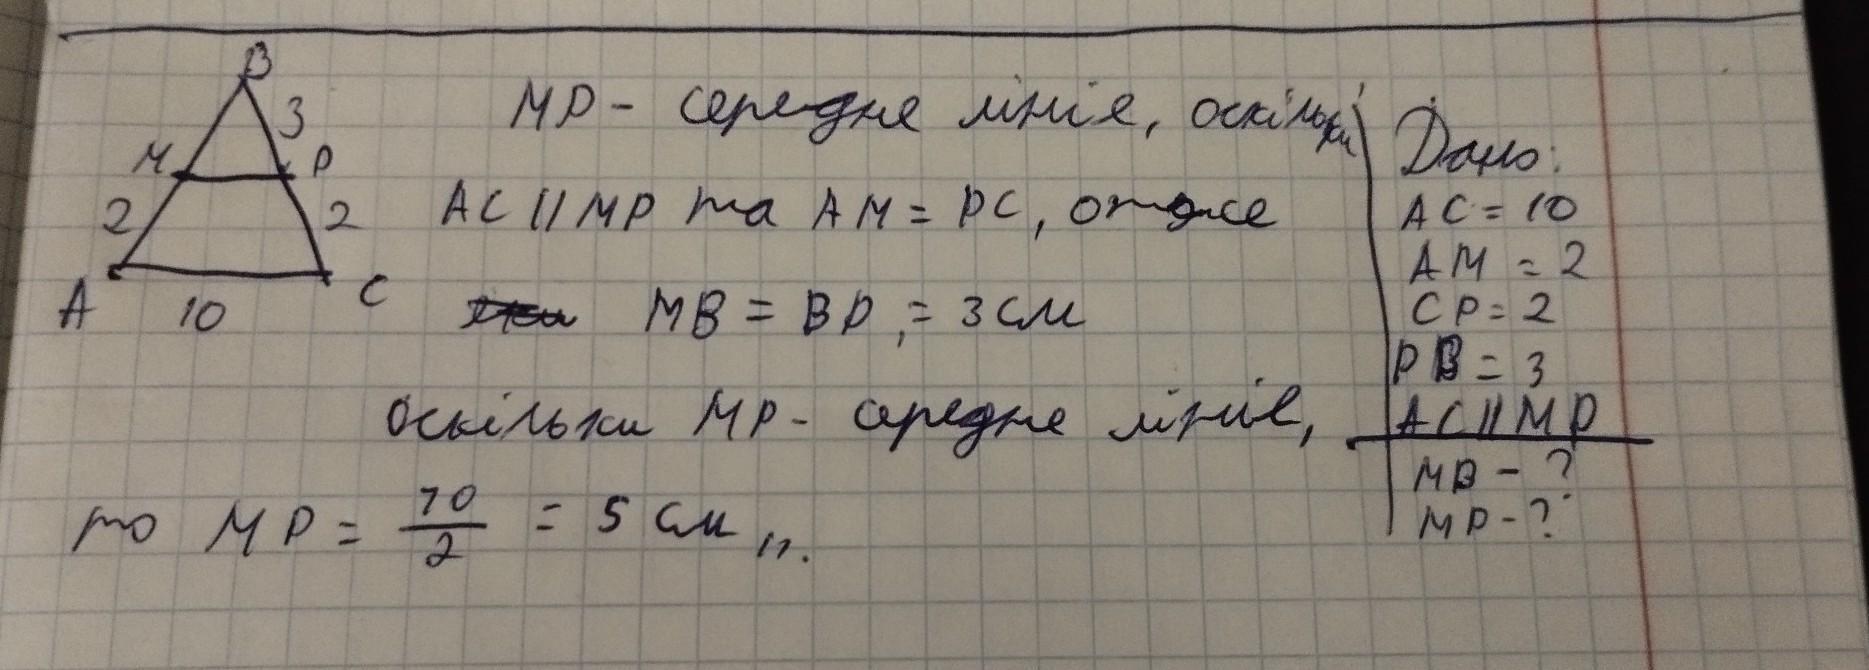 B
3
M P
2 2
A 10 C
MP - середнє лініє, оскільки
AC || MP та AM = PC, отже
MB = BP, = 3 см
оскільки MP - середнє лініє,
то MP = 10/2 = 5 см ,,.
Дано:
AC = 10
AM = 2
CP = 2
PB = 3
AC || MP
MB - ?
MP - ?